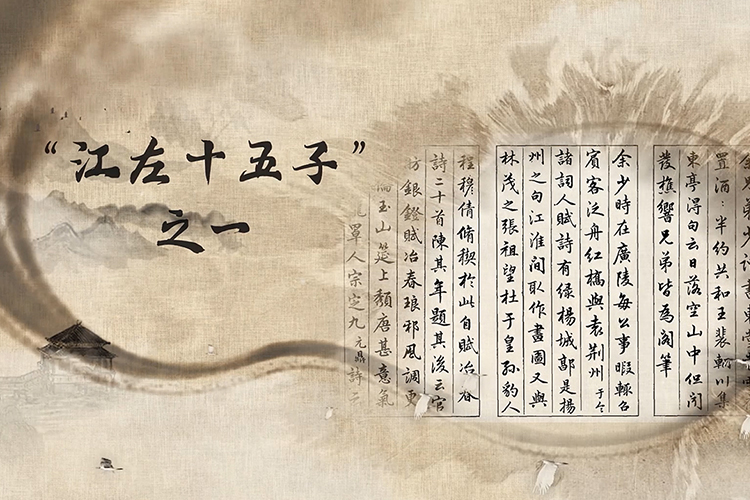 “江左十五子”
之一
置酒：半約共和王裴輞川集
東亭得句云日落空山中但聞
發樵響兄弟皆為閣筆
余少時在廣陵每公事暇輒召
賓客泛舟紅橋與袁荊州于令
諸詞人賦詩有綠楊城郭是揚
州之句江淮間取作畫圖又與
林茂之張祖望杜于皇孫豹人
程穆倩脩禊於此自賦冶春
詩二十首陳其年題其後云官
坊銀鐙賦冶春琅邪風調更
玉山筵上頹唐甚意氣
罩人宗定九元鼎詩二